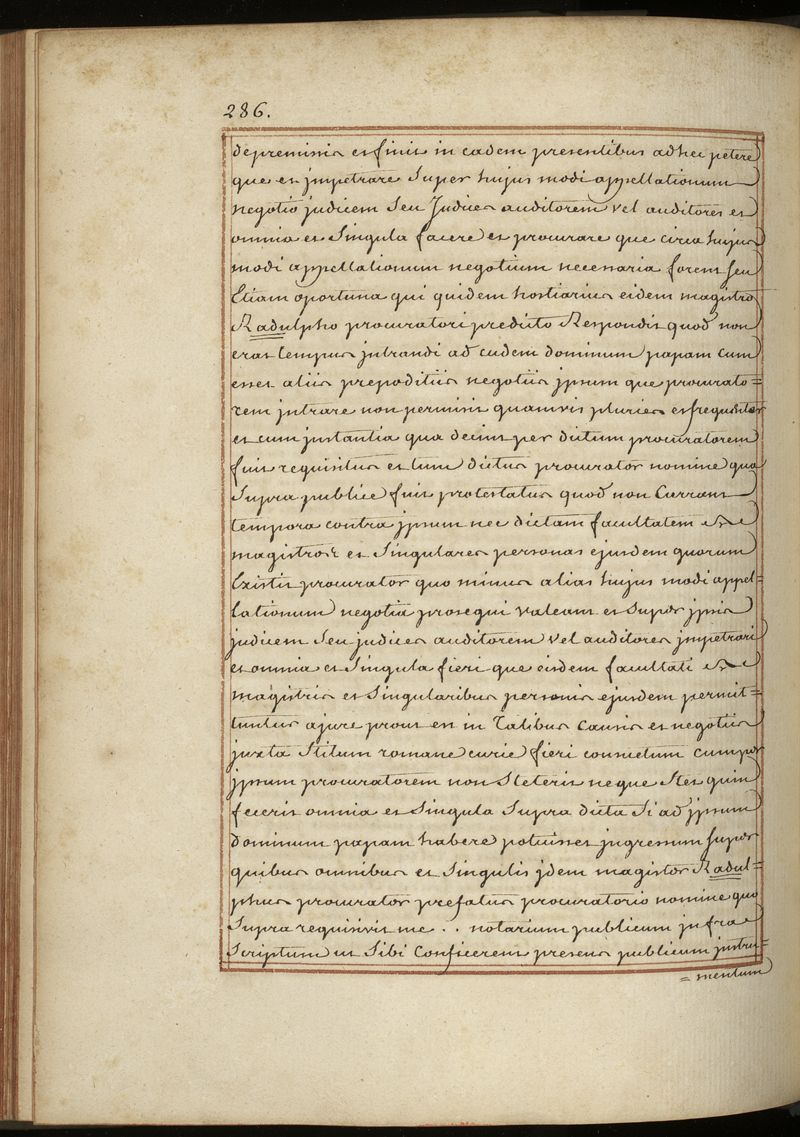 286.
depremissis et finis in eadem presentibus adhec petere
que et jmpetrare Super hujus modi appellationum
negotio judicem Seu Judices auditorem vel auditores et
omnia et Singula facere et procurare que circa hujus
modi appellationum negotium necessaria forent seu
Etiam oportuna qui quidem hostiarius eidem magistro
Radulpho procuratori predicto Respondit quod non
erat tempus jntrandi ad eudem dominum papam cum
esset aliis prepeditus negotiis jpsum que procurato=
rem jntrare non permisit quamvis pluries et frequenter
et cum jnstantia qua decuit per dictum procuratorem
fuit requisitus et tunc dictus procurator nomine quo
Supra publice fuit protestatus quod non Currant
tempora contra jpsum nec dictam facultatem
magistros et Singulares personas ejusdem quorum
Existit procurator quo minus alias hujus modi appel=
lationum negotia prosequi valeant et super jpsis
judicem Seu judices auditorem vel auditores jmpetrari
et omnia et Singula fieri que eisdem facultati
magistris et Singularibus personis ejusdem permit=
tuntur ajure prout est in Talibus Causis et negotiis
juxta Stilum romane curie fieri consuetum cum per
jpsum procuratorem non Steterit neque Stet quin
fecerit omnia et Singula Supra dicta Si ad jpsum
dominum papam habere potuisset jngressum super
quibus omnibus et Singulis jdem magister Radul=
phus procurator prefatus procuratorio nomine quo
Supra requisivit me . . notarium publicum jnfra
Scriptum ut Sibi Conficerem presens publicum jnstru=
=mentum